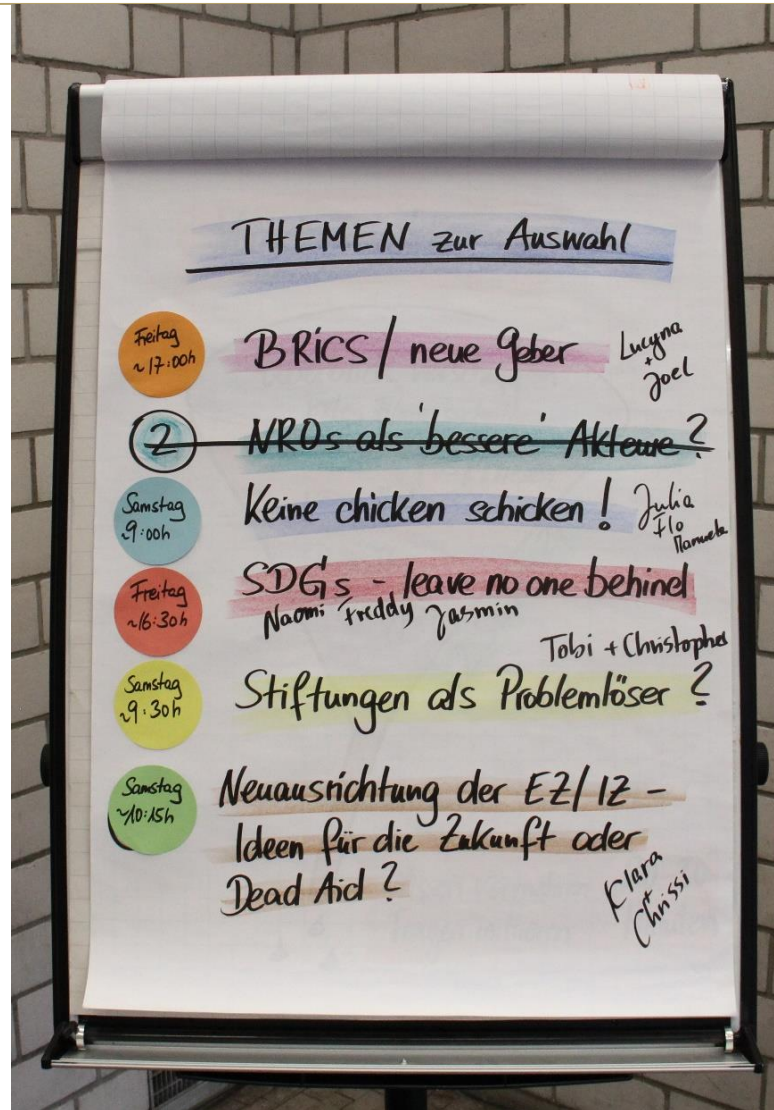 THEMEN zur Auswahl
Freitag
~17:00h
BRICS / neue Geber
Lucyna
+
Joel
2
NROs als 'bessere' Akteure ?
Samstag
~9:00h
Keine chicken schicken !
Julia
Flo
Manuela
Freitag
~16:30h
SDGs - leave no one behind
Naomi Freddy Jasmin
Tobi + Christopher
Samstag
~9:30h
Stiftungen als Problemlöser ?
Samstag
~10:15h
Neuausrichtung der EZ/IZ -
Ideen für die Zukunft oder
Dead Aid ?
Klara
+
Chrissi